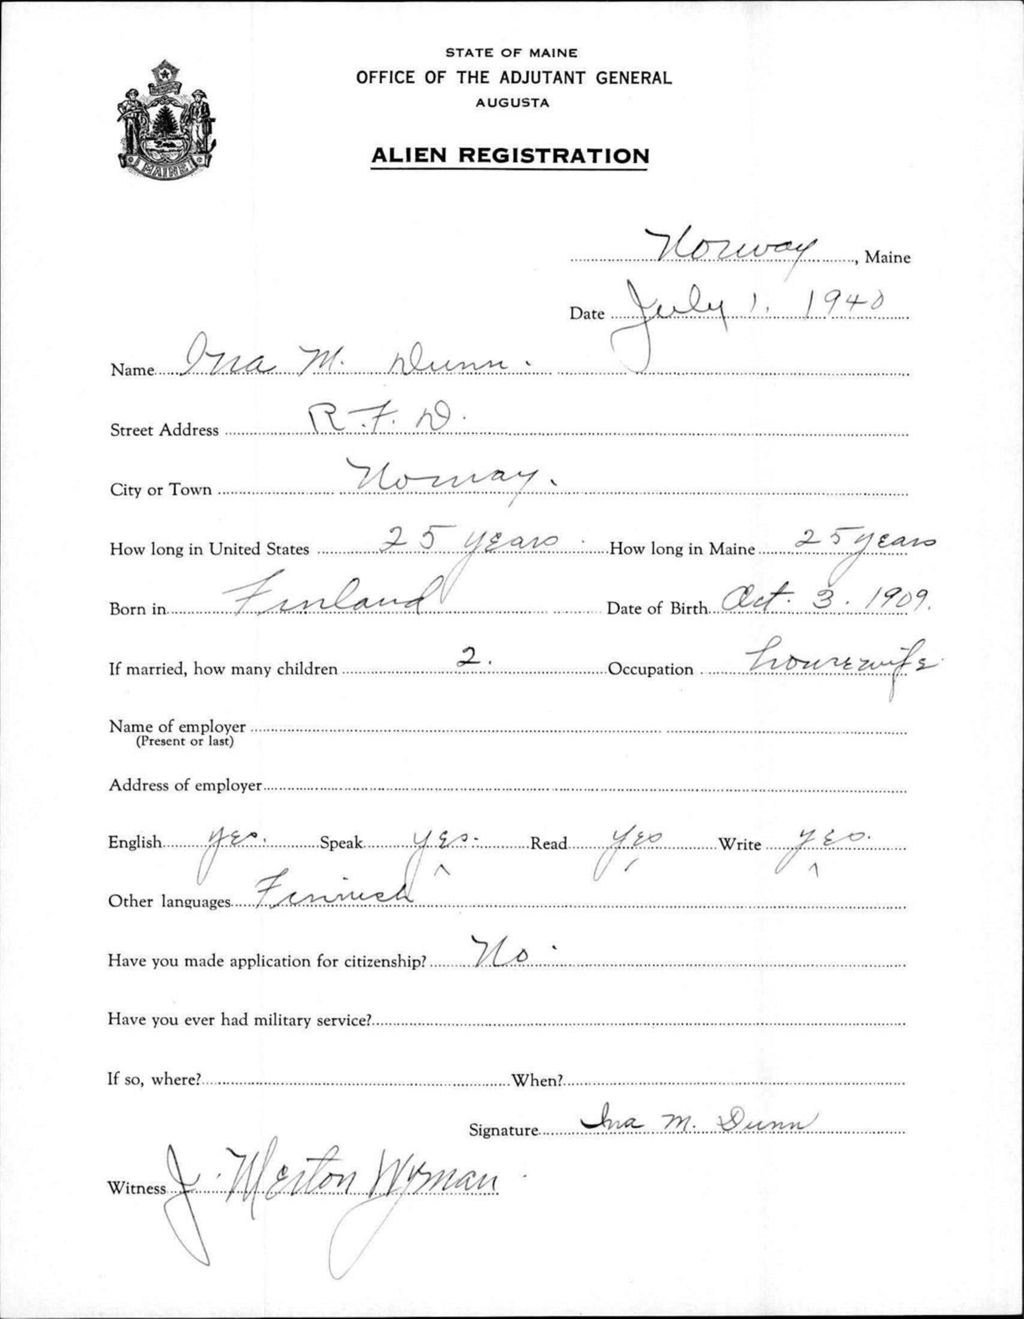 STATE OF MAINE
OFFICE OF THE ADJUTANT GENERAL
AUGUSTA
ALIEN REGISTRATION
MAINE
Norway, Maine
Date July 1. 1940
Name Ina M. Dunn.
Street Address R.F.D.
City or Town Norway.
How long in United States 25 years. How long in Maine 25 years
Born in Finland Date of Birth Oct. 3. 1909.
If married, how many children 2. Occupation housewife
Name of employer
(Present or last)
Address of employer
English yes. Speak yes. Read yes Write yes.
Other languages Finnish
Have you made application for citizenship? No.
Have you ever had military service?
If so, where? When?
Signature Ina M. Dunn
Witness J. Merton Wyman.